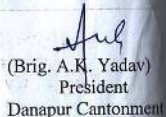 (Brig. A.K. Yadav)
President
Danapur Cantonment